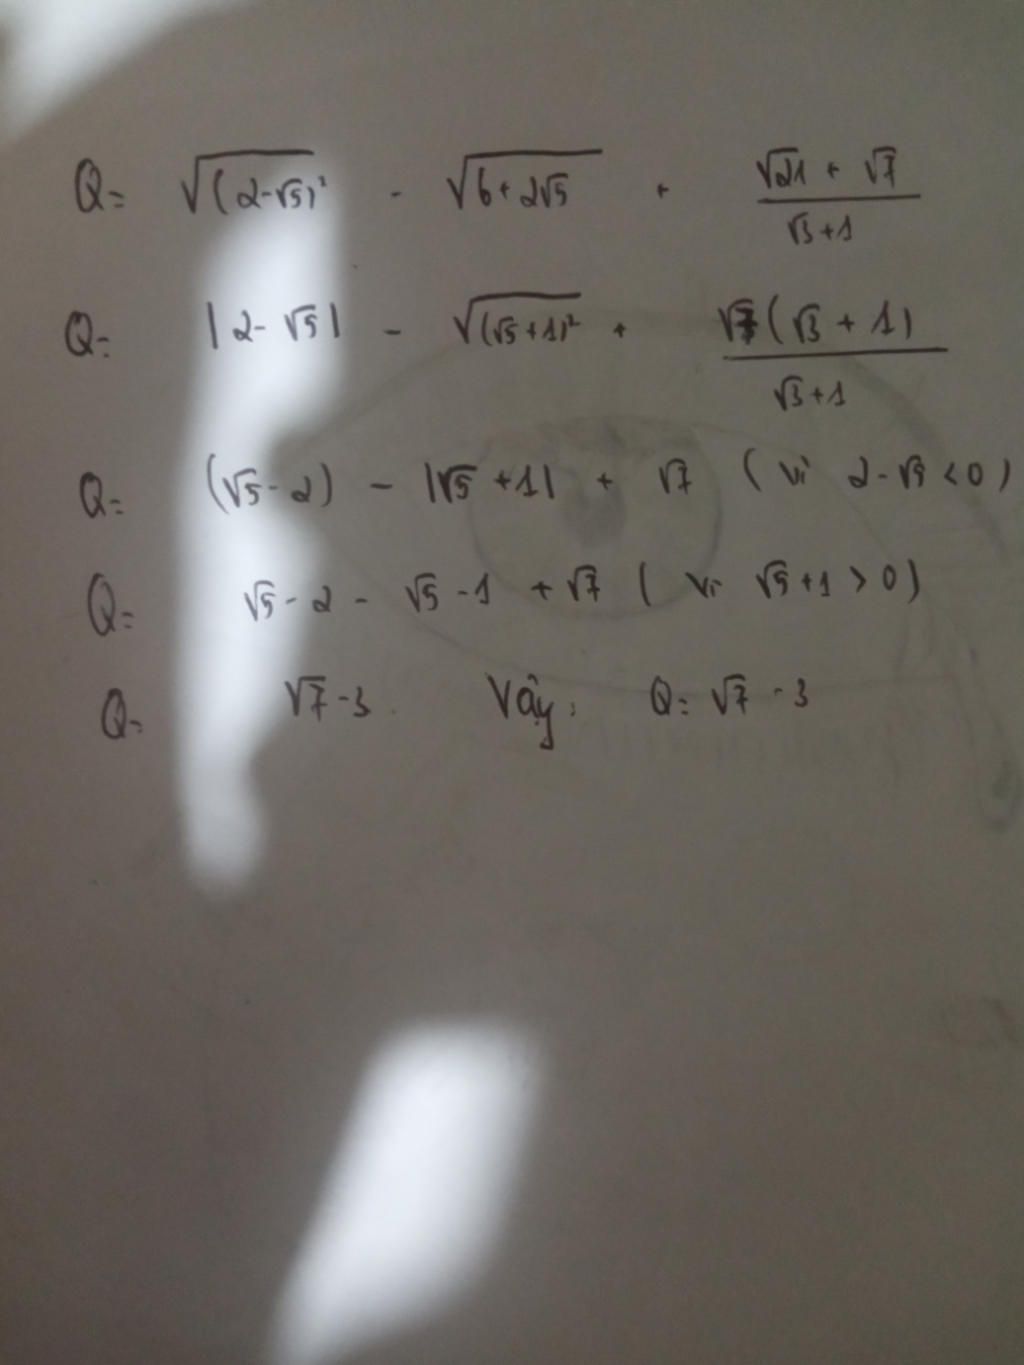 Q= √(2-√5)² - √6+2√5 + √21 + √7 / √3+1
Q= |2-√5| - √(√5+1)² + √7(√3+1) / √3+1
Q= (√5-2) - |√5+1| + √7 (vì 2-√5<0)
Q= √5-2-√5-1+√7 (vì √5+1>0)
Q= √7-3 Vậy: Q= √7-3